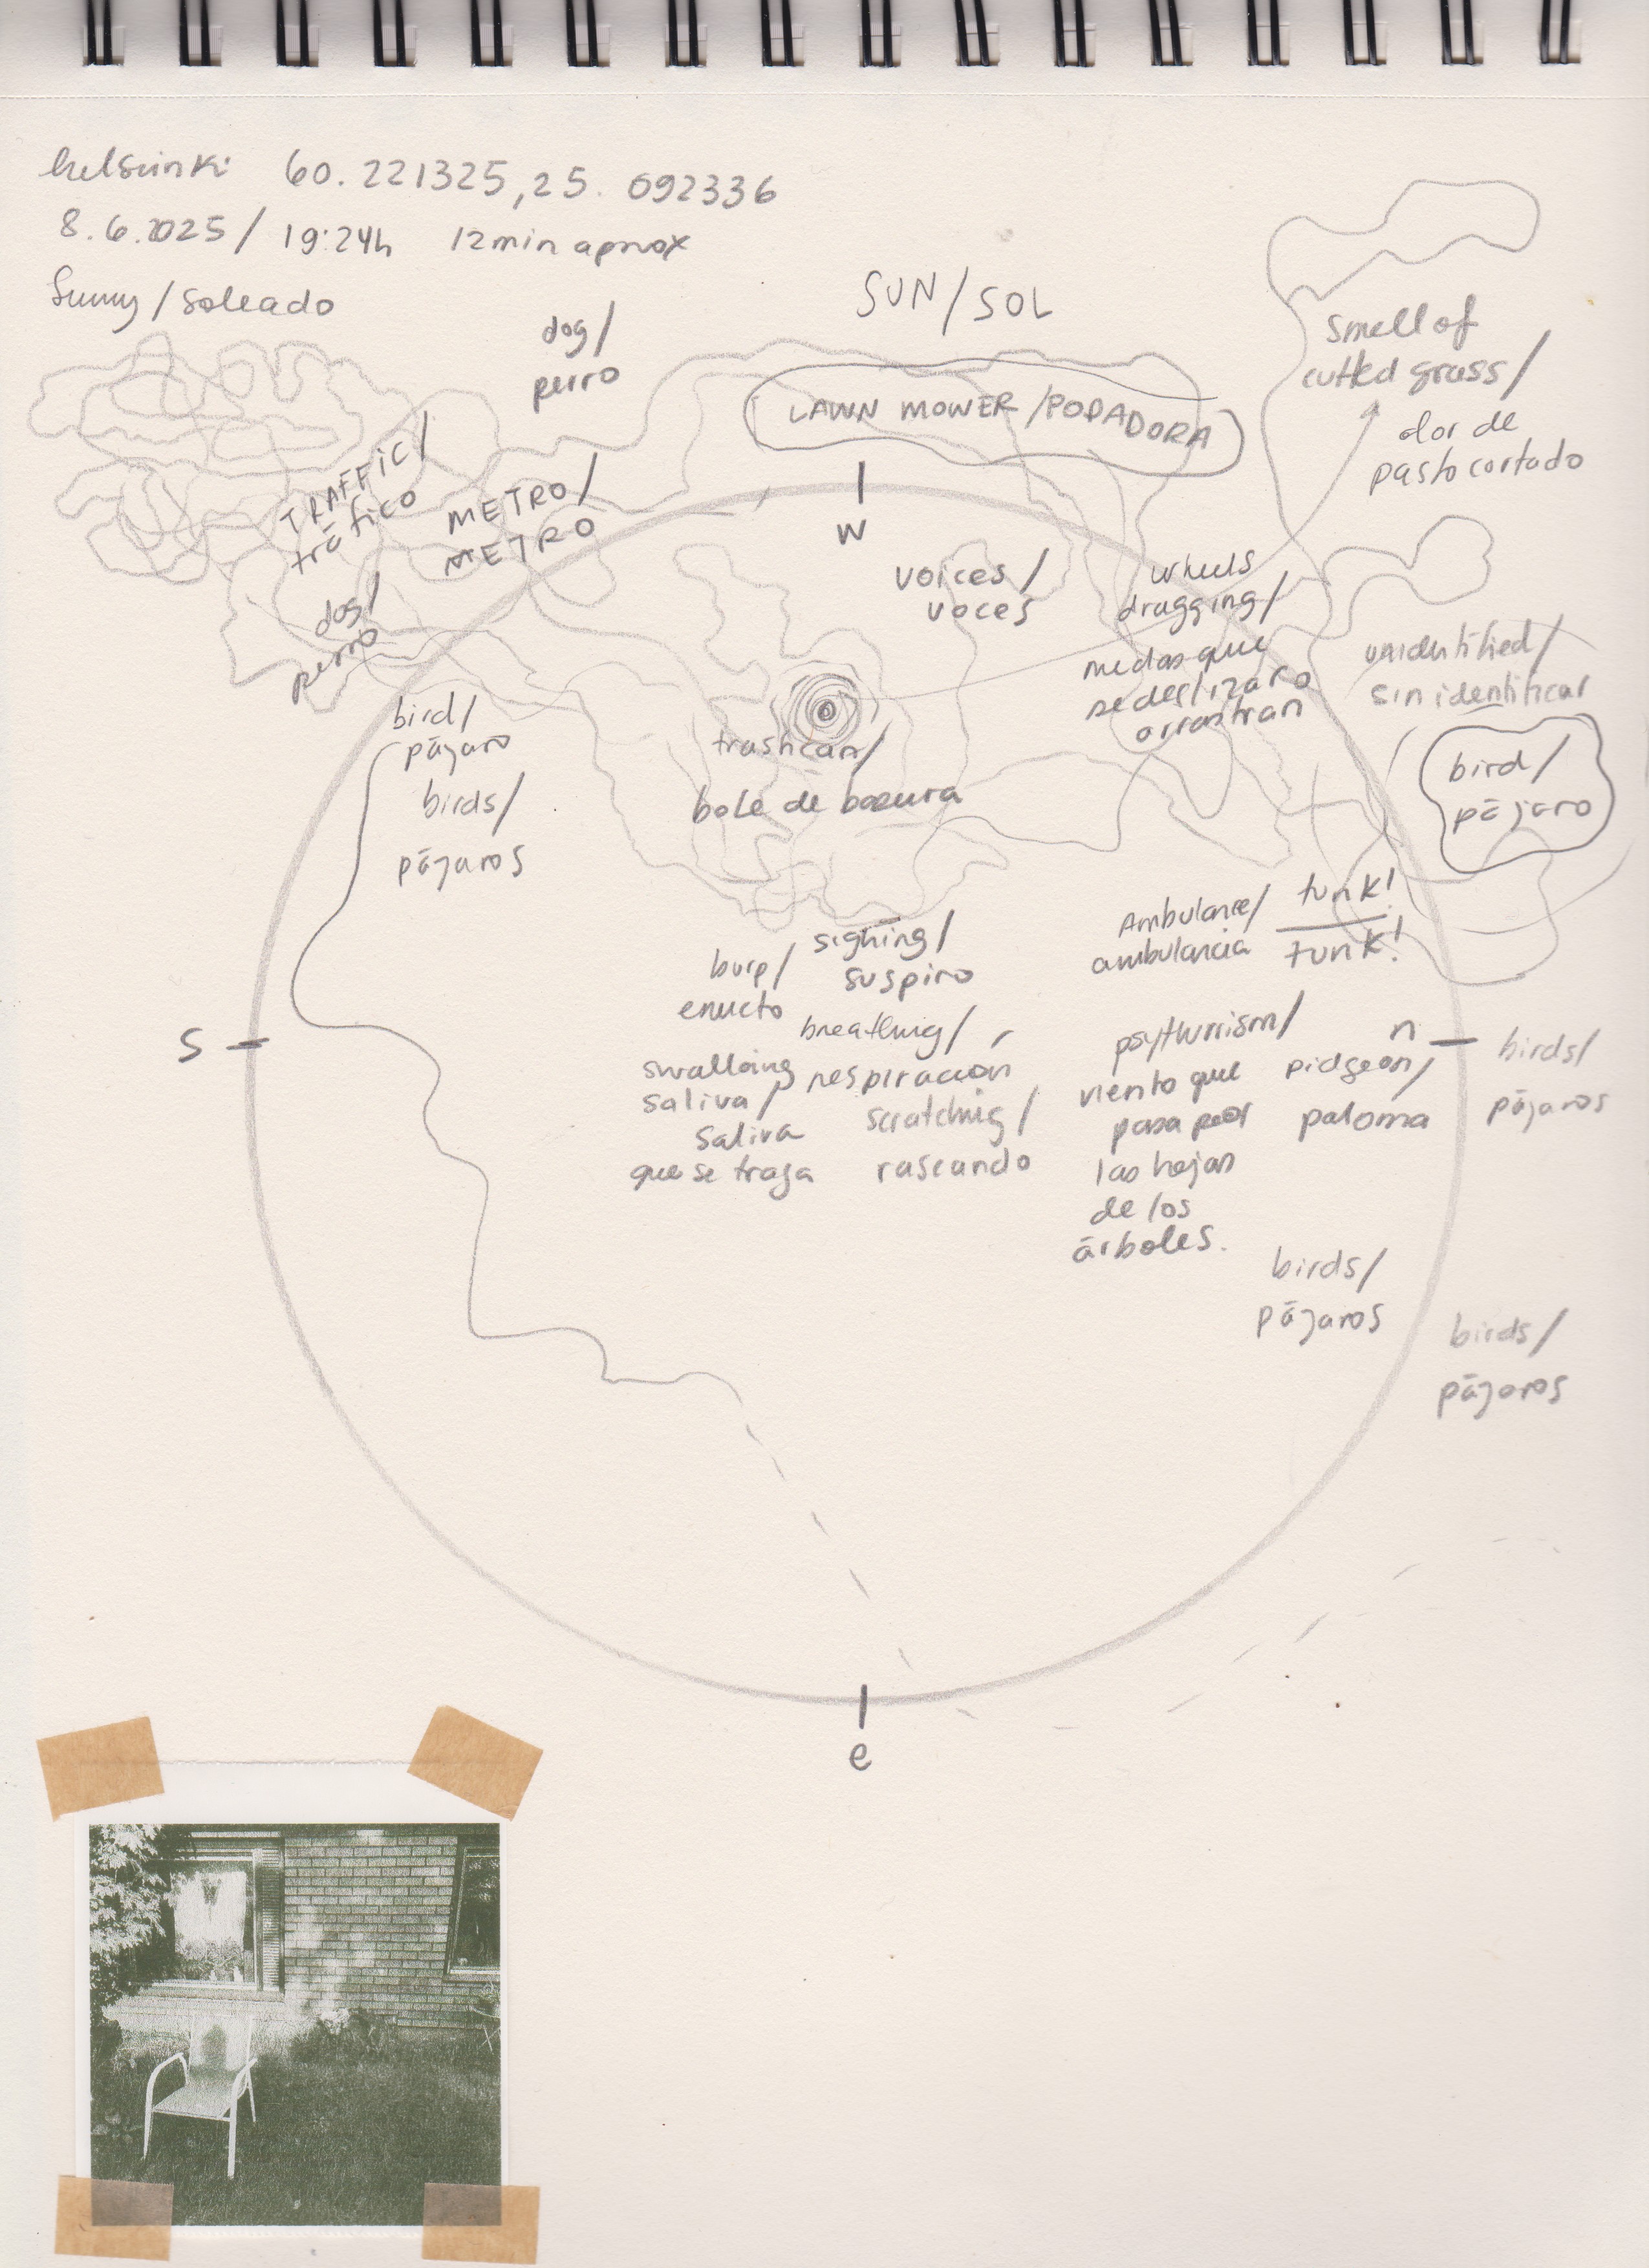 helsinki 60.221325, 25.092336
8.6.2025 / 19:24h 12min aprox
Sunny / soleado
SUN / SOL
dog /
perro
smell of
cutted grass /
olor de
pasto cortado
LAWN MOWER / PODADORA
TRAFFIC /
tráfico
METRO /
METRO
w
dog /
perro
voices /
voces
wheels
dragging /
ruedas que
se deslizan o
arrastran
unidentified /
sin identificar
bird /
pájaro
birds /
pájaros
trashcan /
bote de basura
bird /
pájaro
sighing /
suspiro
burp /
eructo
breathing /
respiración
swalloing
saliva /
saliva
que se traga
scratching /
rascando
Ambulance /
ambulancia
tunk!
tunk!
psythurrism /
viento que
pasa por
las hojas
de los
árboles.
s
n
pidgeon /
paloma
birds /
pájaros
birds /
pájaros
birds /
pájaros
e